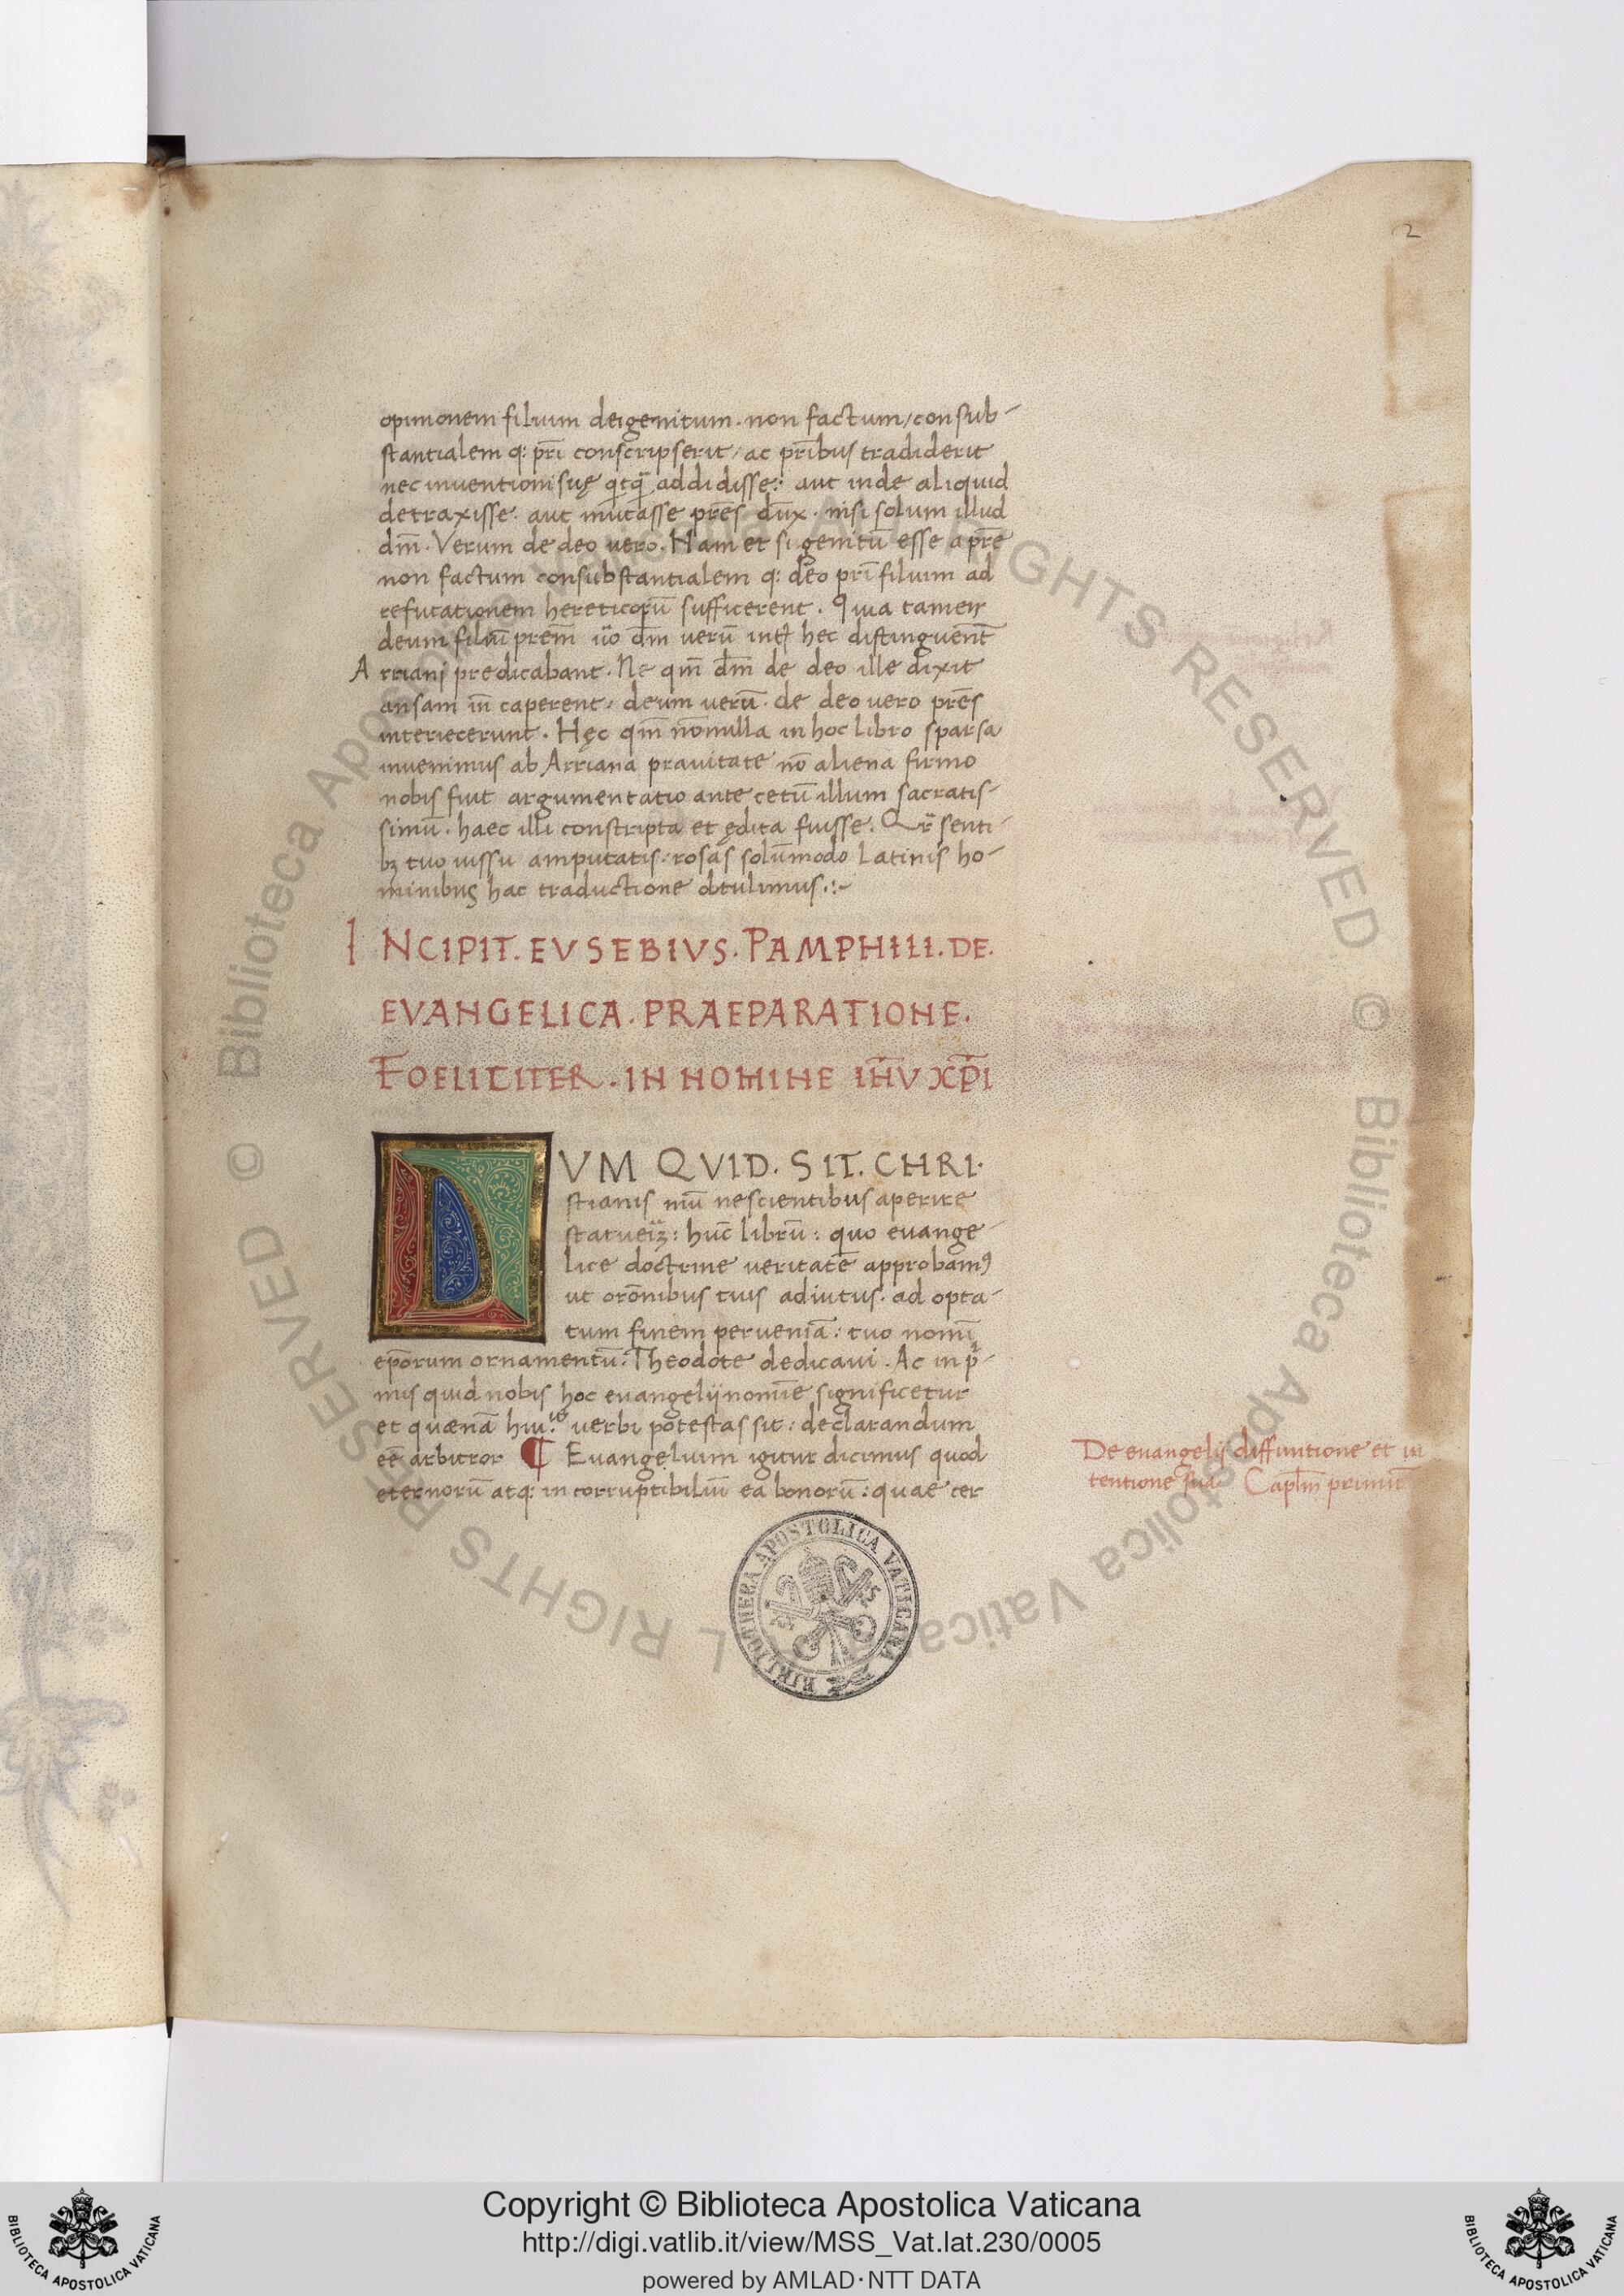 2
opinionem filium dei genitum. non factum/consub-
stantialem q: pr̄i conscripserit/ ac pr̄ibus tradiderit
nec inventioni suę addidisse: aut inde aliquid
detraxisse. aut mutasse pr̄es dūx. nisi solum illud
dm̄. Verum de deo vero. Nam et si genitū esse a pr̄e
non factum consubstantialem q: deo pr̄i filium ad
refutationem hereticorū sufficerent. Quia tamen
deum filiū prem̄ ūo dm̄ verū hec distinguent̄
Arriani predicabant. Ne qm̄ dm̄ de deo ille dixit
ansam in̄ caperent/ deum verū. de deo vero pr̄es
interiecerunt. Hęc qm̄ nōnulla in hoc libro sparsa
invenimus ab Arriana pravitate nō aliena firmo
nobis fuit argumentatio ante cetū illum sacratis-
simū. haec illi conscripta et ędita fuisse. Qr̄ senti-
bȝ tuo iussu amputatis. rosas solūmodo Latinis ho-
minibus hac traductione obtulimus.:~
INCIPIT. EVSEBIVS. PAMPHILI. DE.
EVANGELICA. PRAEPARATIONE.
FOELICITER. IN NOMINE IH̄V XP̄I
DVM QVID. SIT. CHRI.
stianis mū nescientibus aperire
hūc librū: quo evange-
lice doctrine veritatē approbamꝰ
ut orōnibus tuis adiutus. ad opta-
tum finem perveniā: tuo nomī
ep̄orum ornamentū: Theodote dedicavi. Ac in p-
mis quid nobis hoc evangelij nomīe significetur
et quænā huiꝰ verbi potestas sit: declarandum
eē arbitror ¶ Evangelium igitur dicimus quod
eternorū atq: incorruptibiliū ea bonorū: quae cer
De evangelij diffinitione et in
tentione sua. Capl̄m primū
BIBLIOTHECA APOSTOLICA VATICANA
© Biblioteca Apostolica Vaticana ALL RIGHTS RESERVED © Biblioteca Apostolica Vaticana ALL RIGHTS RESERVED
BIBLIOTECA APOSTOLICA VATICANA
Copyright © Biblioteca Apostolica Vaticana
http://digi.vatlib.it/view/MSS_Vat.lat.230/0005
powered by AMLAD·NTT DATA
BIBLIOTECA APOSTOLICA VATICANA